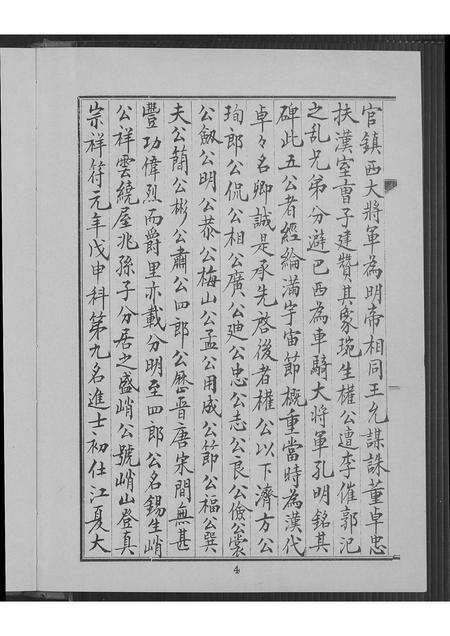 官鎮西大將軍為明帝相同王允謀誅董卓忠
扶漢室曹子建贊其象琬生權公遭李傕郭汜
之乱兄弟分避巴西為車騎大將軍孔明銘其
碑此五公者經綸滿宇宙節概重當時為漢代
卓々名卿誠是承先啓後者權公以下濟方公
珣郎公侃公相公廣公廸公忠公志公良公儉公裳
公劔公明公恭公梅山公孟公用成公節公福公巽
夫公簡公彬公肅公四郎公歷晉唐宋間無甚
豐功偉烈而爵里亦載分明至四郎公名錫生峭
公祥雲繞屋兆孫子分居之盛峭公號峭山登真
宗祥符元年戊申科第九名進士初仕江夏大
4